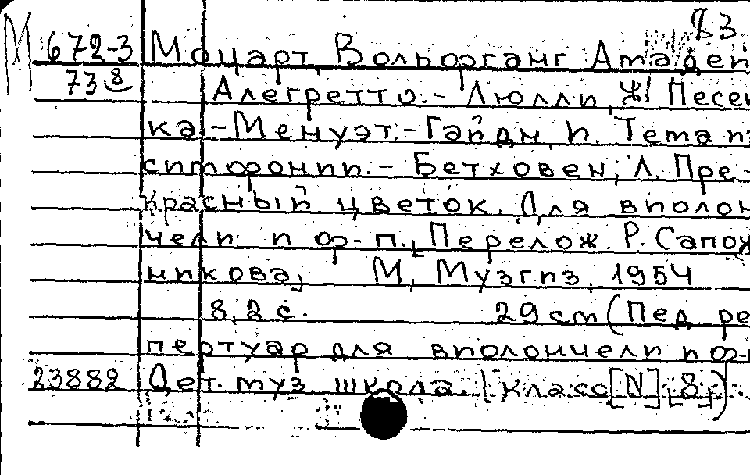 83
М 672-3 Моцарт, Вольфганг Амадей
73 8 Алегретто.- Люлли, Ж! Песен
ка.-Менуэт.-Гайдн, И. Тема из
симфонии.- Бетховен, Л. Пре-
красный цветок. Для виолон
чели и ф-п. Перелож. Р. Сапож
никова, М, Музгиз, 1954
8,2 с. 29 cm (Пед. ре
пертуар для виолончели и ф-
23882 Дет. муз. школа. I класс [N] 8)